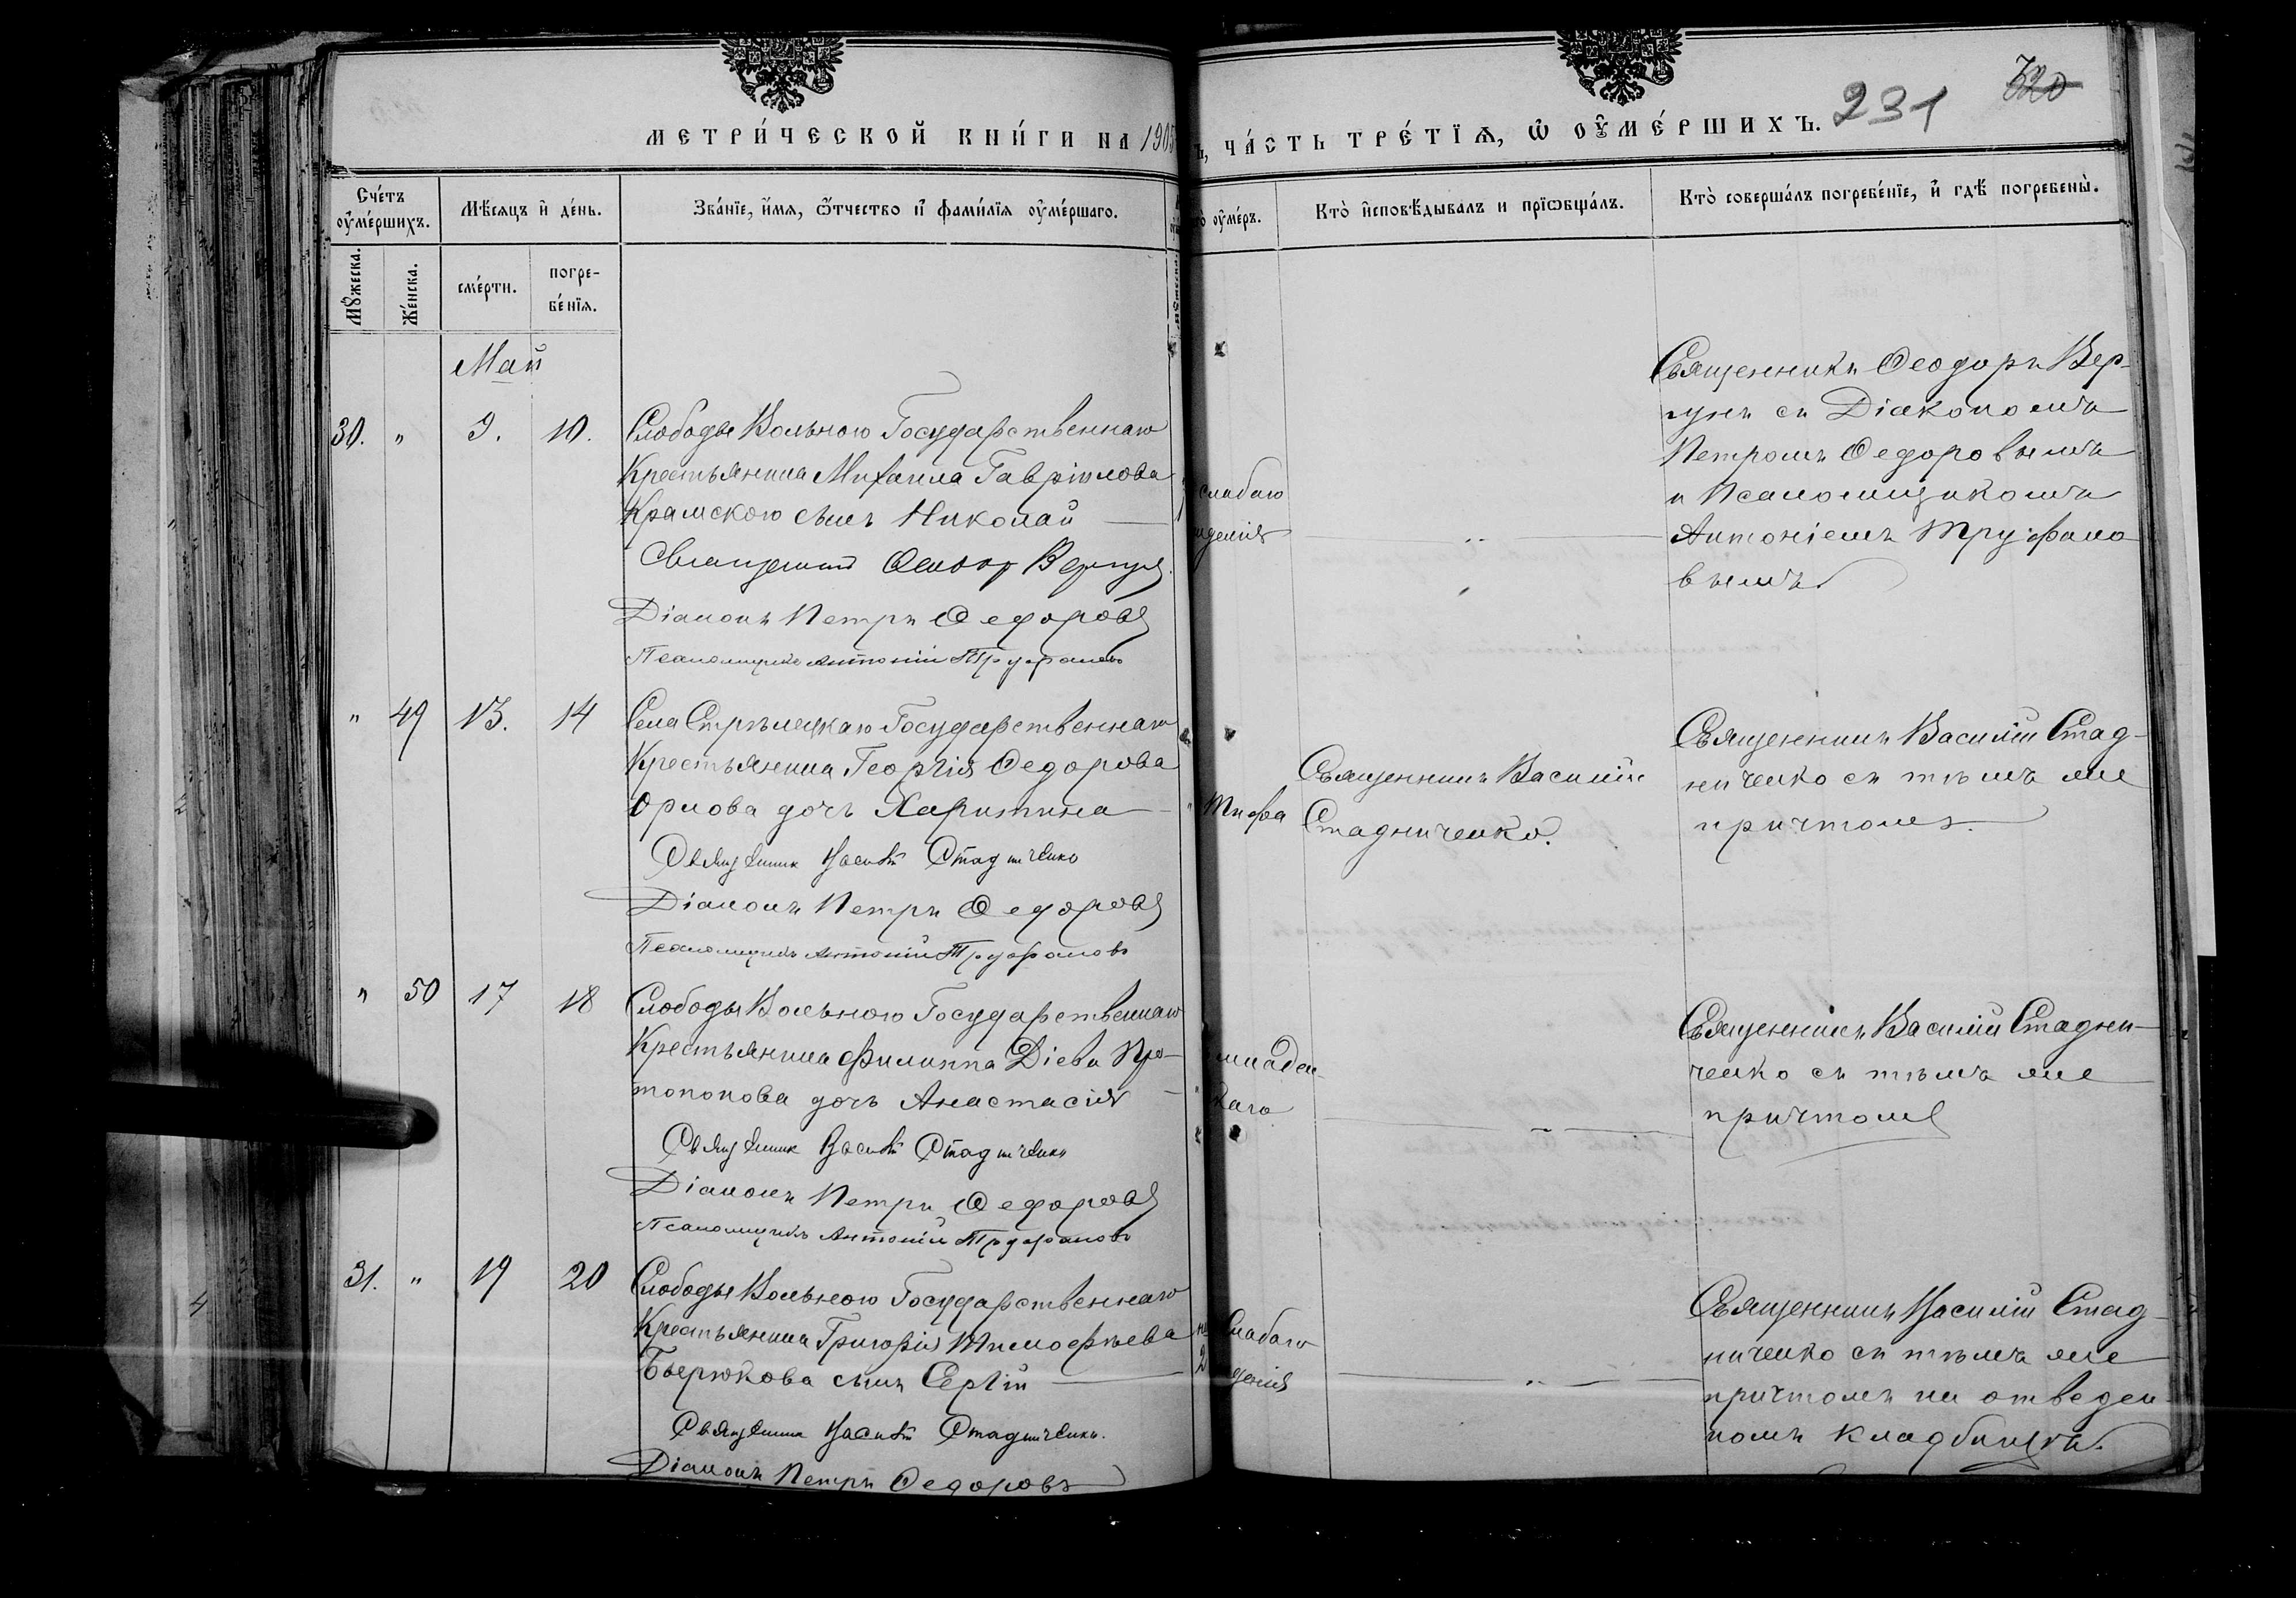 МЕТРИ́ЧЕСКОЙ КНИ́ГИ НА 1905
Ъ, ЧА́СТЬ ТРЕ́ТЇѦ, Ѡ҆ ОУ҆МЕ́РШИХЪ.
231
320
Сче́тъ оу҆ме́ршихъ.
Мѣ́сяцъ и҆ де́нь.
Зва́нїе, и҆́мя, ѻ҆́тчество и҆ фами́лїя оу҆ме́ршаго.
о̀ оу҆ме́ръ.
Кто̀ и҆сповѣ́дывалъ и прїѡбща́лъ.
Кто̀ соверша́лъ погребе́нїе, и҆ гдѣ̀ погребены̀.
Мꙋ́жеска.
Же́нска.
сме́рти.
погре-
бе́нїя.
Май
30. " 9. 10.
Слободы Вольною Государственнаго
Крестьянина Михаила Гавріилова
Крамского сынъ Николай
Священникъ Ѳеодоръ Вергунъ
Діаконъ Петръ Ѳедоровъ
Псаломщикъ Антоній Труфановъ
слабаго
жденія
Священникъ Ѳеодоръ Вер-
гунъ съ Діакономъ
Петромъ Ѳедоровымъ
и Псаломщикомъ
Антоніемъ Труфано
вымъ
" 49 13. 14
Села Стрѣлецкаго Государственнаго
Крестьянина Георгія Ѳедорова
Орлова дочь Харитина
Священникъ Василій Стадниченко
Діаконъ Петръ Ѳедоровъ
Псаломщикъ Антоній Труфановъ
Тифа
Священникъ Василій
Стадниченко.
Священникъ Василій Стад-
ниченко съ тѣмъ же
причтомъ.
" 50 17 18
Слободы Вольною Государственнаго
Крестьянина Филиппа Діева Про-
топопова дочь Анастасія
Священникъ Василій Стадниченко
Діаконъ Петръ Ѳедоровъ
Псаломщикъ Антоній Труфановъ
младен-
каго
Священникъ Василій Стадни-
ченко съ тѣмъ же
причтомъ
31. " 19 20
Слободы Вольною Государственнаго
Крестьянина Григорія Тимофѣева
сынъ Сергій
Священникъ Василій Стадниченко.
Діаконъ Петръ Ѳедоровъ
2
слабаго
денія
Священникъ Василій Стад-
ниченко съ тѣмъ же
причтомъ на отведен
номъ кладбищѣ.